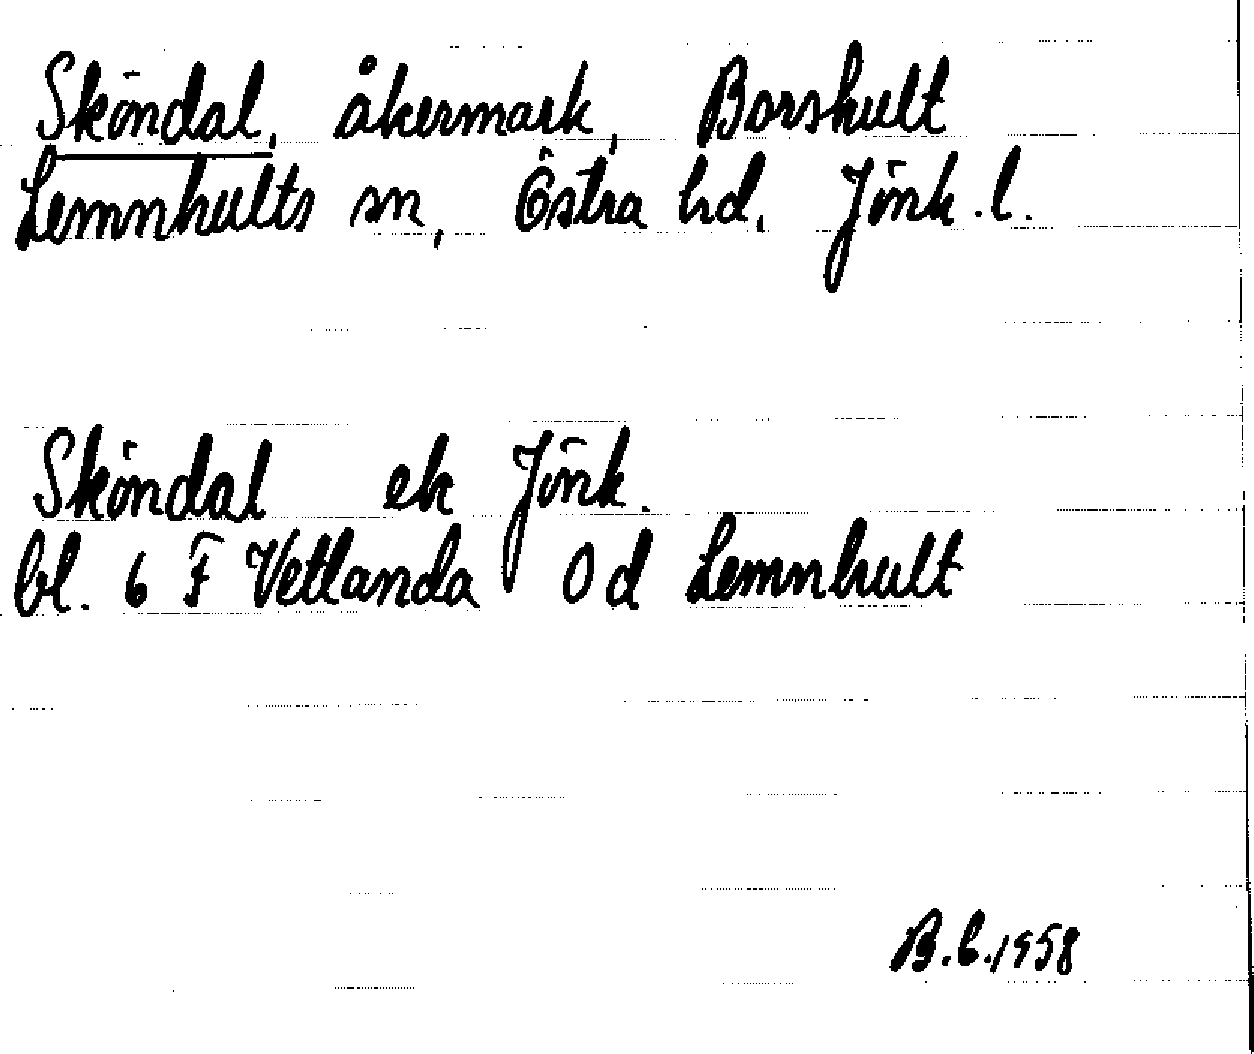 Sköndal, åkermark, Borshult
Lemnhults sn, Östra hd, Jönk.l.
Sköndal ek Jönk.
bl. 6 F Vetlanda 0d Lemnhult
B.E.1958